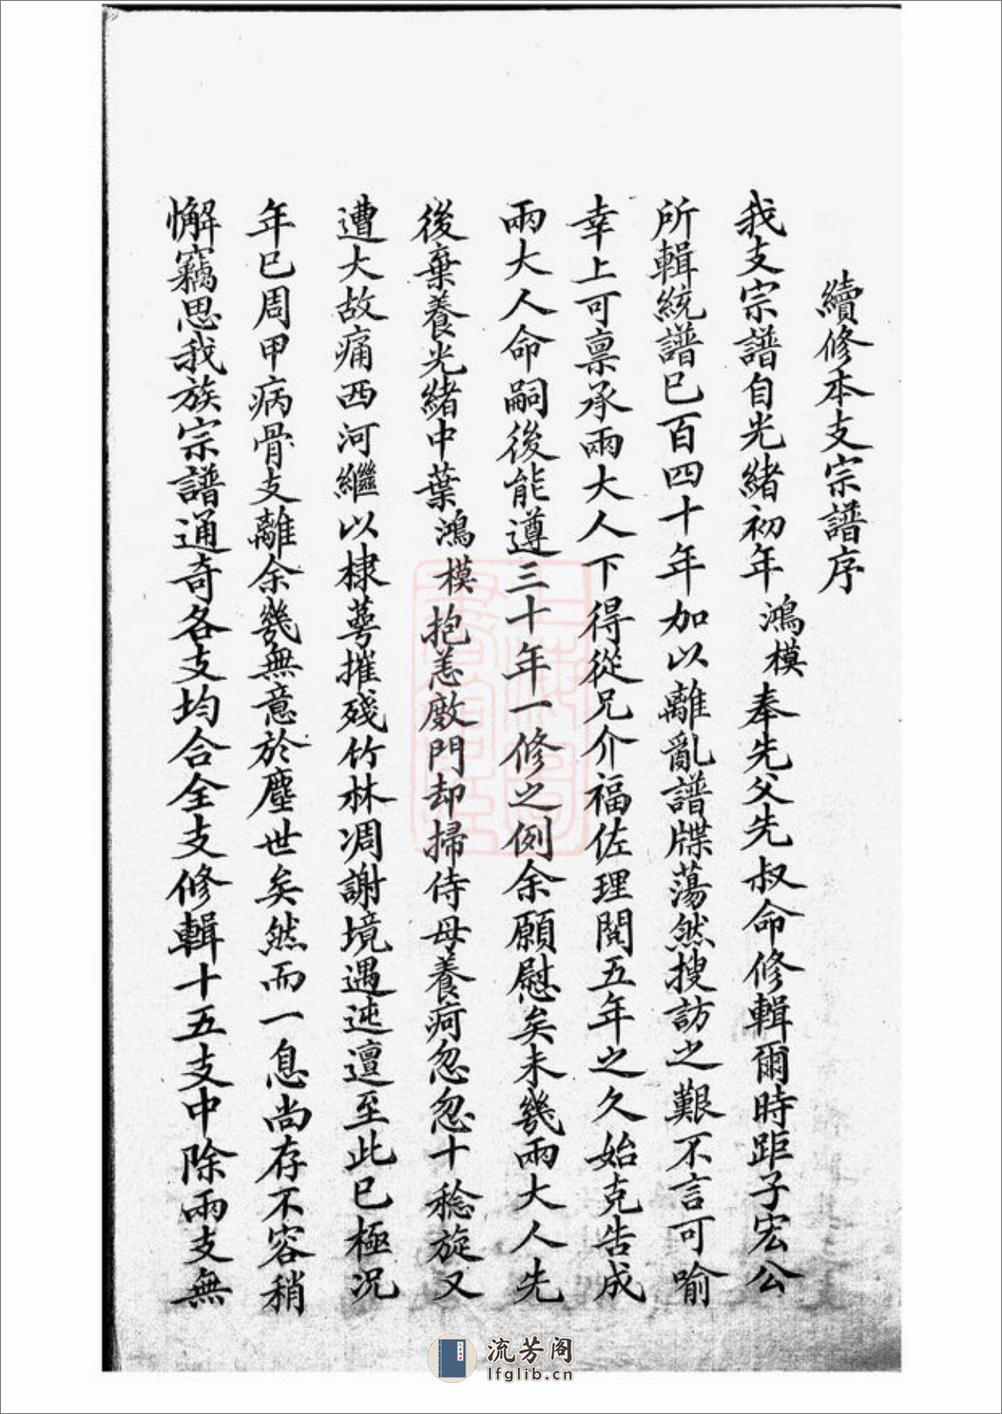 續修本支宗譜序
我支宗譜自光緒初年鴻模奉先父先叔命修輯爾時距子宏公
所輯統譜已百四十年加以離亂譜牒蕩然搜訪之艱不言可喻
幸上可禀承兩大人下得從兄介福佐理閱五年之久始克告成
兩大人命嗣後能遵三十年一修之例余願慰矣未幾兩大人先
後棄養光緒中葉鴻模抱恙廠門却掃侍母養疴忽忽十稔旋又
遭大故痛西河繼以棣萼摧殘竹林凋謝境遇迍邅至此已極況
年已周甲病骨支離余幾無意於塵世矣然而一息尚存不容稍
懈竊思我族宗譜通奇各支均合全支修輯十五支中除兩支無
流芳阁
lfglib.cn